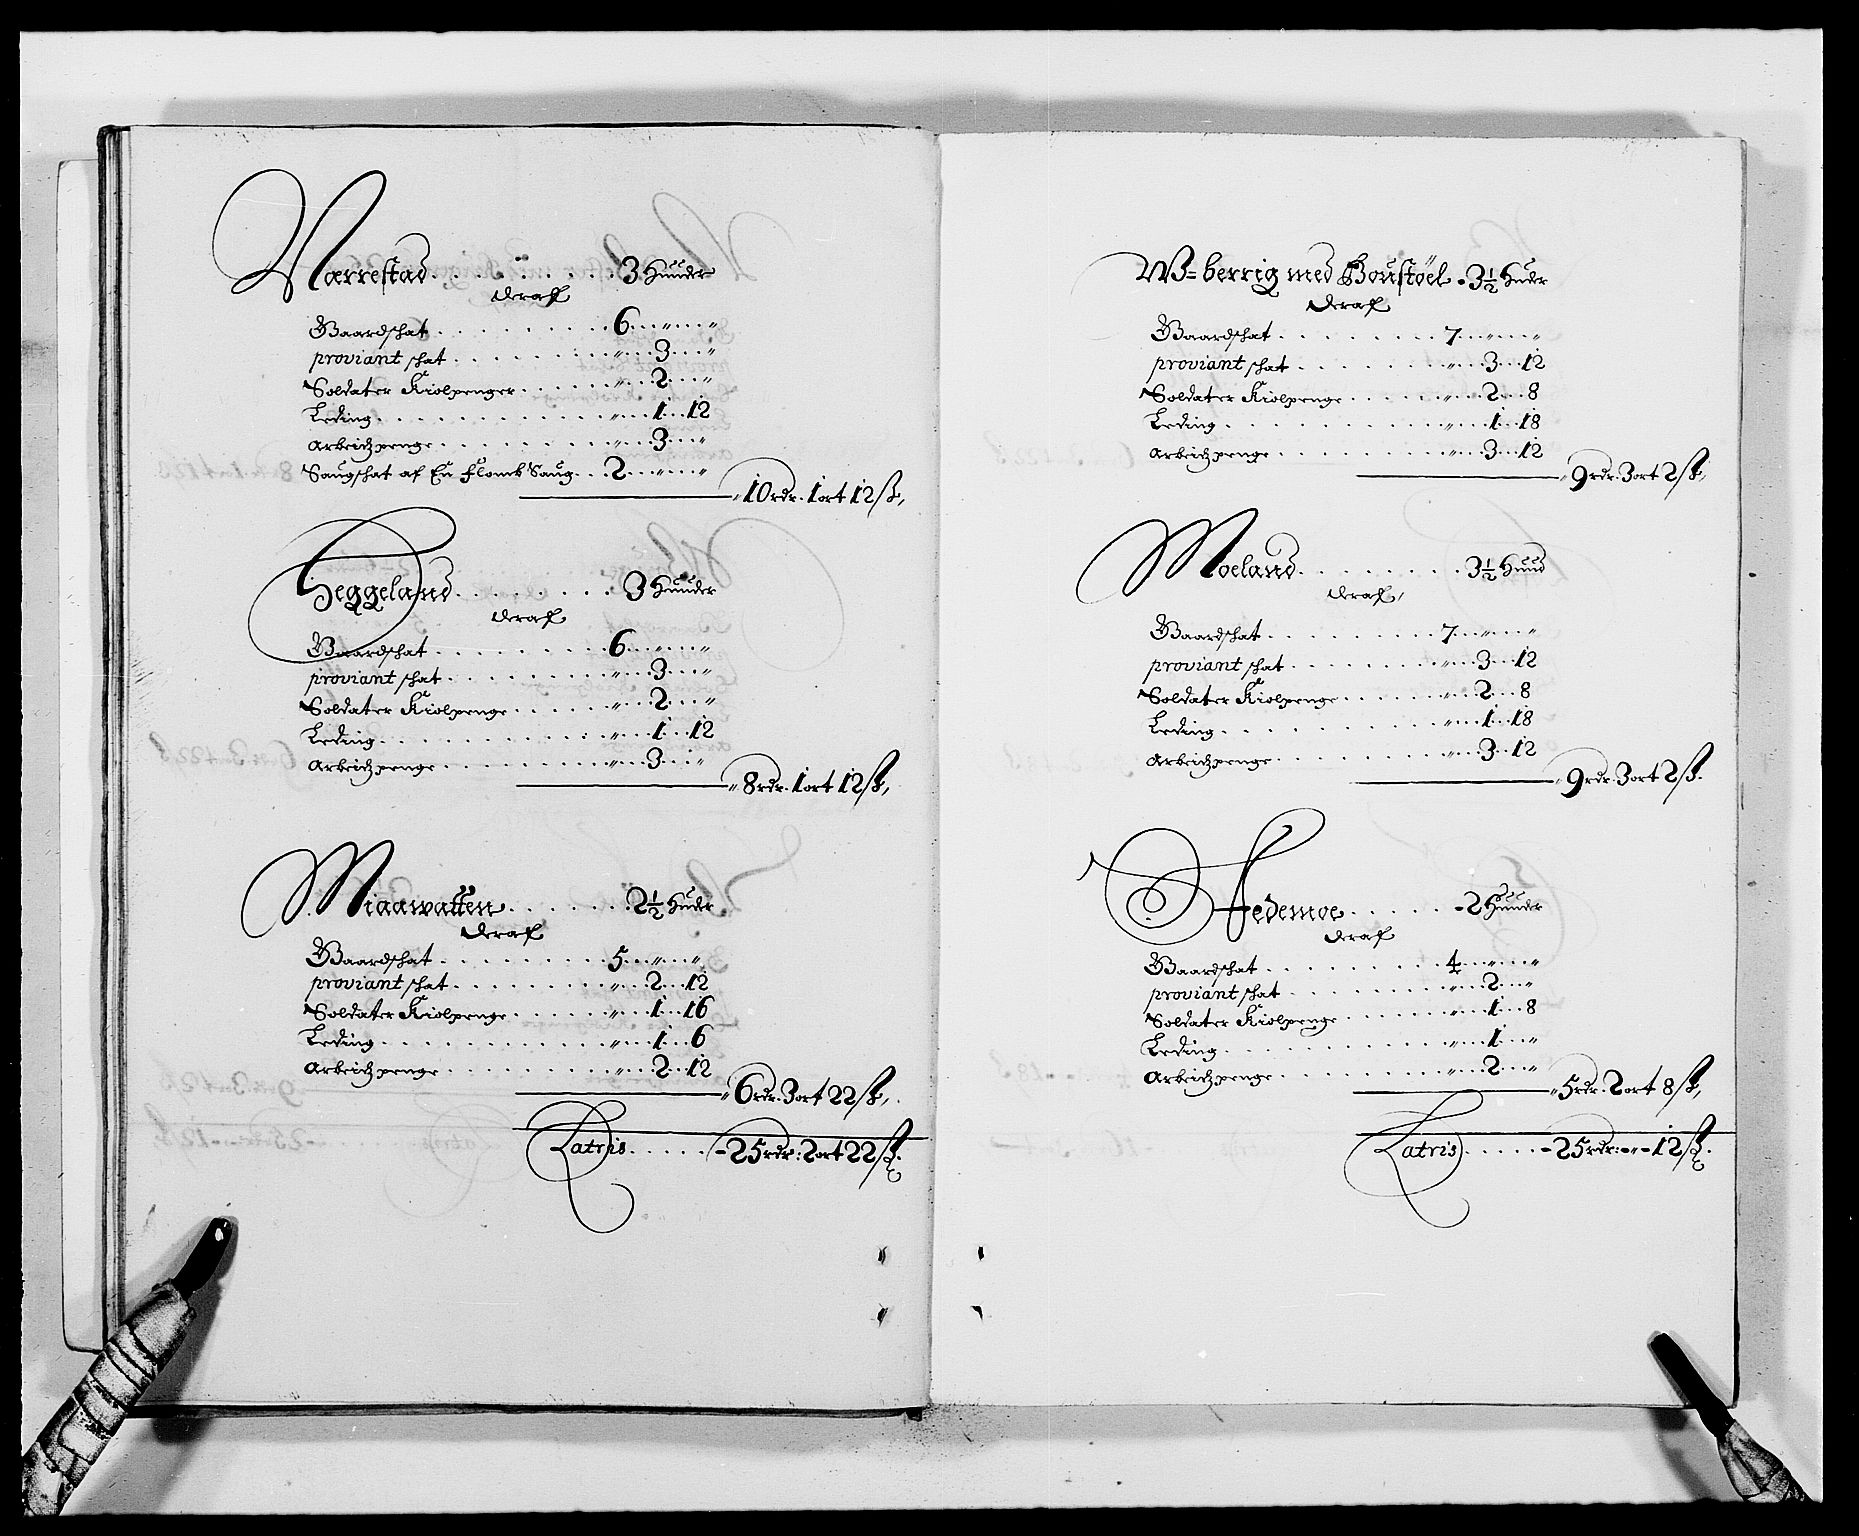 Narrestad . . . . . . . . 3 Huuder
deraf
Gaardschat . . . . . . . . . 6 . . " . . "
proviant schat . . . . . . . . " . . 3 . . "
Soldater Kiolpenger . . . . . . " . . 2 . . "
Leding . . . . . . . . . . . " . . 1 . . 12
Arbeidzpenge . . . . . . . . . " . . 3 . . "
Saugschat af En flomb Saug . . 2 . . " . . "
" 10 rdr. 1 ort 12 ß,
Heggeland . . . . . . . . 3 Huuder
deraf
Gaardschat . . . . . . . . . 6 . . " . . "
proviant schat . . . . . . . . " . . 3 . . "
Soldater Kiolpenge . . . . . . " . . 2 . . "
Leding . . . . . . . . . . . " . . 1 . . 12
Arbeidzpenge . . . . . . . . . " . . 3 . . "
" 8 rdr. 1 ort 12 ß,
Miaawatten . . . . . . . 2½ Hudr
deraf
Gaardschat . . . . . . . . . 5 . . " . . "
proviant schat . . . . . . . . " . . 2 . . 12
Soldater Kiolpenge . . . . . . " . . 1 . . 16
Leding . . . . . . . . . . . " . . 1 . . 6
Arbeidzpenge . . . . . . . . . " . . 2 . . 12
" 6 rdr. 3 ort 22 ß,
Latris . . . . . - 25 rdr: 2 ort 22 ß.
W=berrig med Boustöel - 3½ Huder
deraf
Gaardschat . . . . . . . . . 7 . . " . . "
proviant schat . . . . . . . . " . . 3 . . 12
Soldater Kiolpenge . . . . . . " . . 2 . . 8
Leding . . . . . . . . . . . " . . 1 . . 18
Arbeidzpenge . . . . . . . . . " . . 3 . . 12
" 9 rdr. 3 ort 2 ß,
Moeland . . . . . . . . 3½ Huud
deraf,
Gaardschat . . . . . . . . . 7 . . " . . "
proviant schat . . . . . . . . " . . 3 . . 12
Soldater Kiolpenge . . . . . . " . . 2 . . 8
Leding . . . . . . . . . . . " . . 1 . . 18
Arbeidzpenge . . . . . . . . . " . . 3 . . 12
" 9 rdr. 3 ort 2 ß.
Hedemoe . . . . . - 2 Huuder
deraf
Gaardschat . . . . . . . . . 4 . . " . . "
proviant schat . . . . . . . . " . . 2 . . "
Soldater Kiolpenge . . . . . . " . . 1 . . 8
Leding . . . . . . . . . . . " . . 1 . . "
Arbeidzpenge . . . . . . . . . " . . 2 . . "
" 5 rdr. 2 ort 8 ß,
Latris . . . . . - 25 rdr: - " - 12 ß.